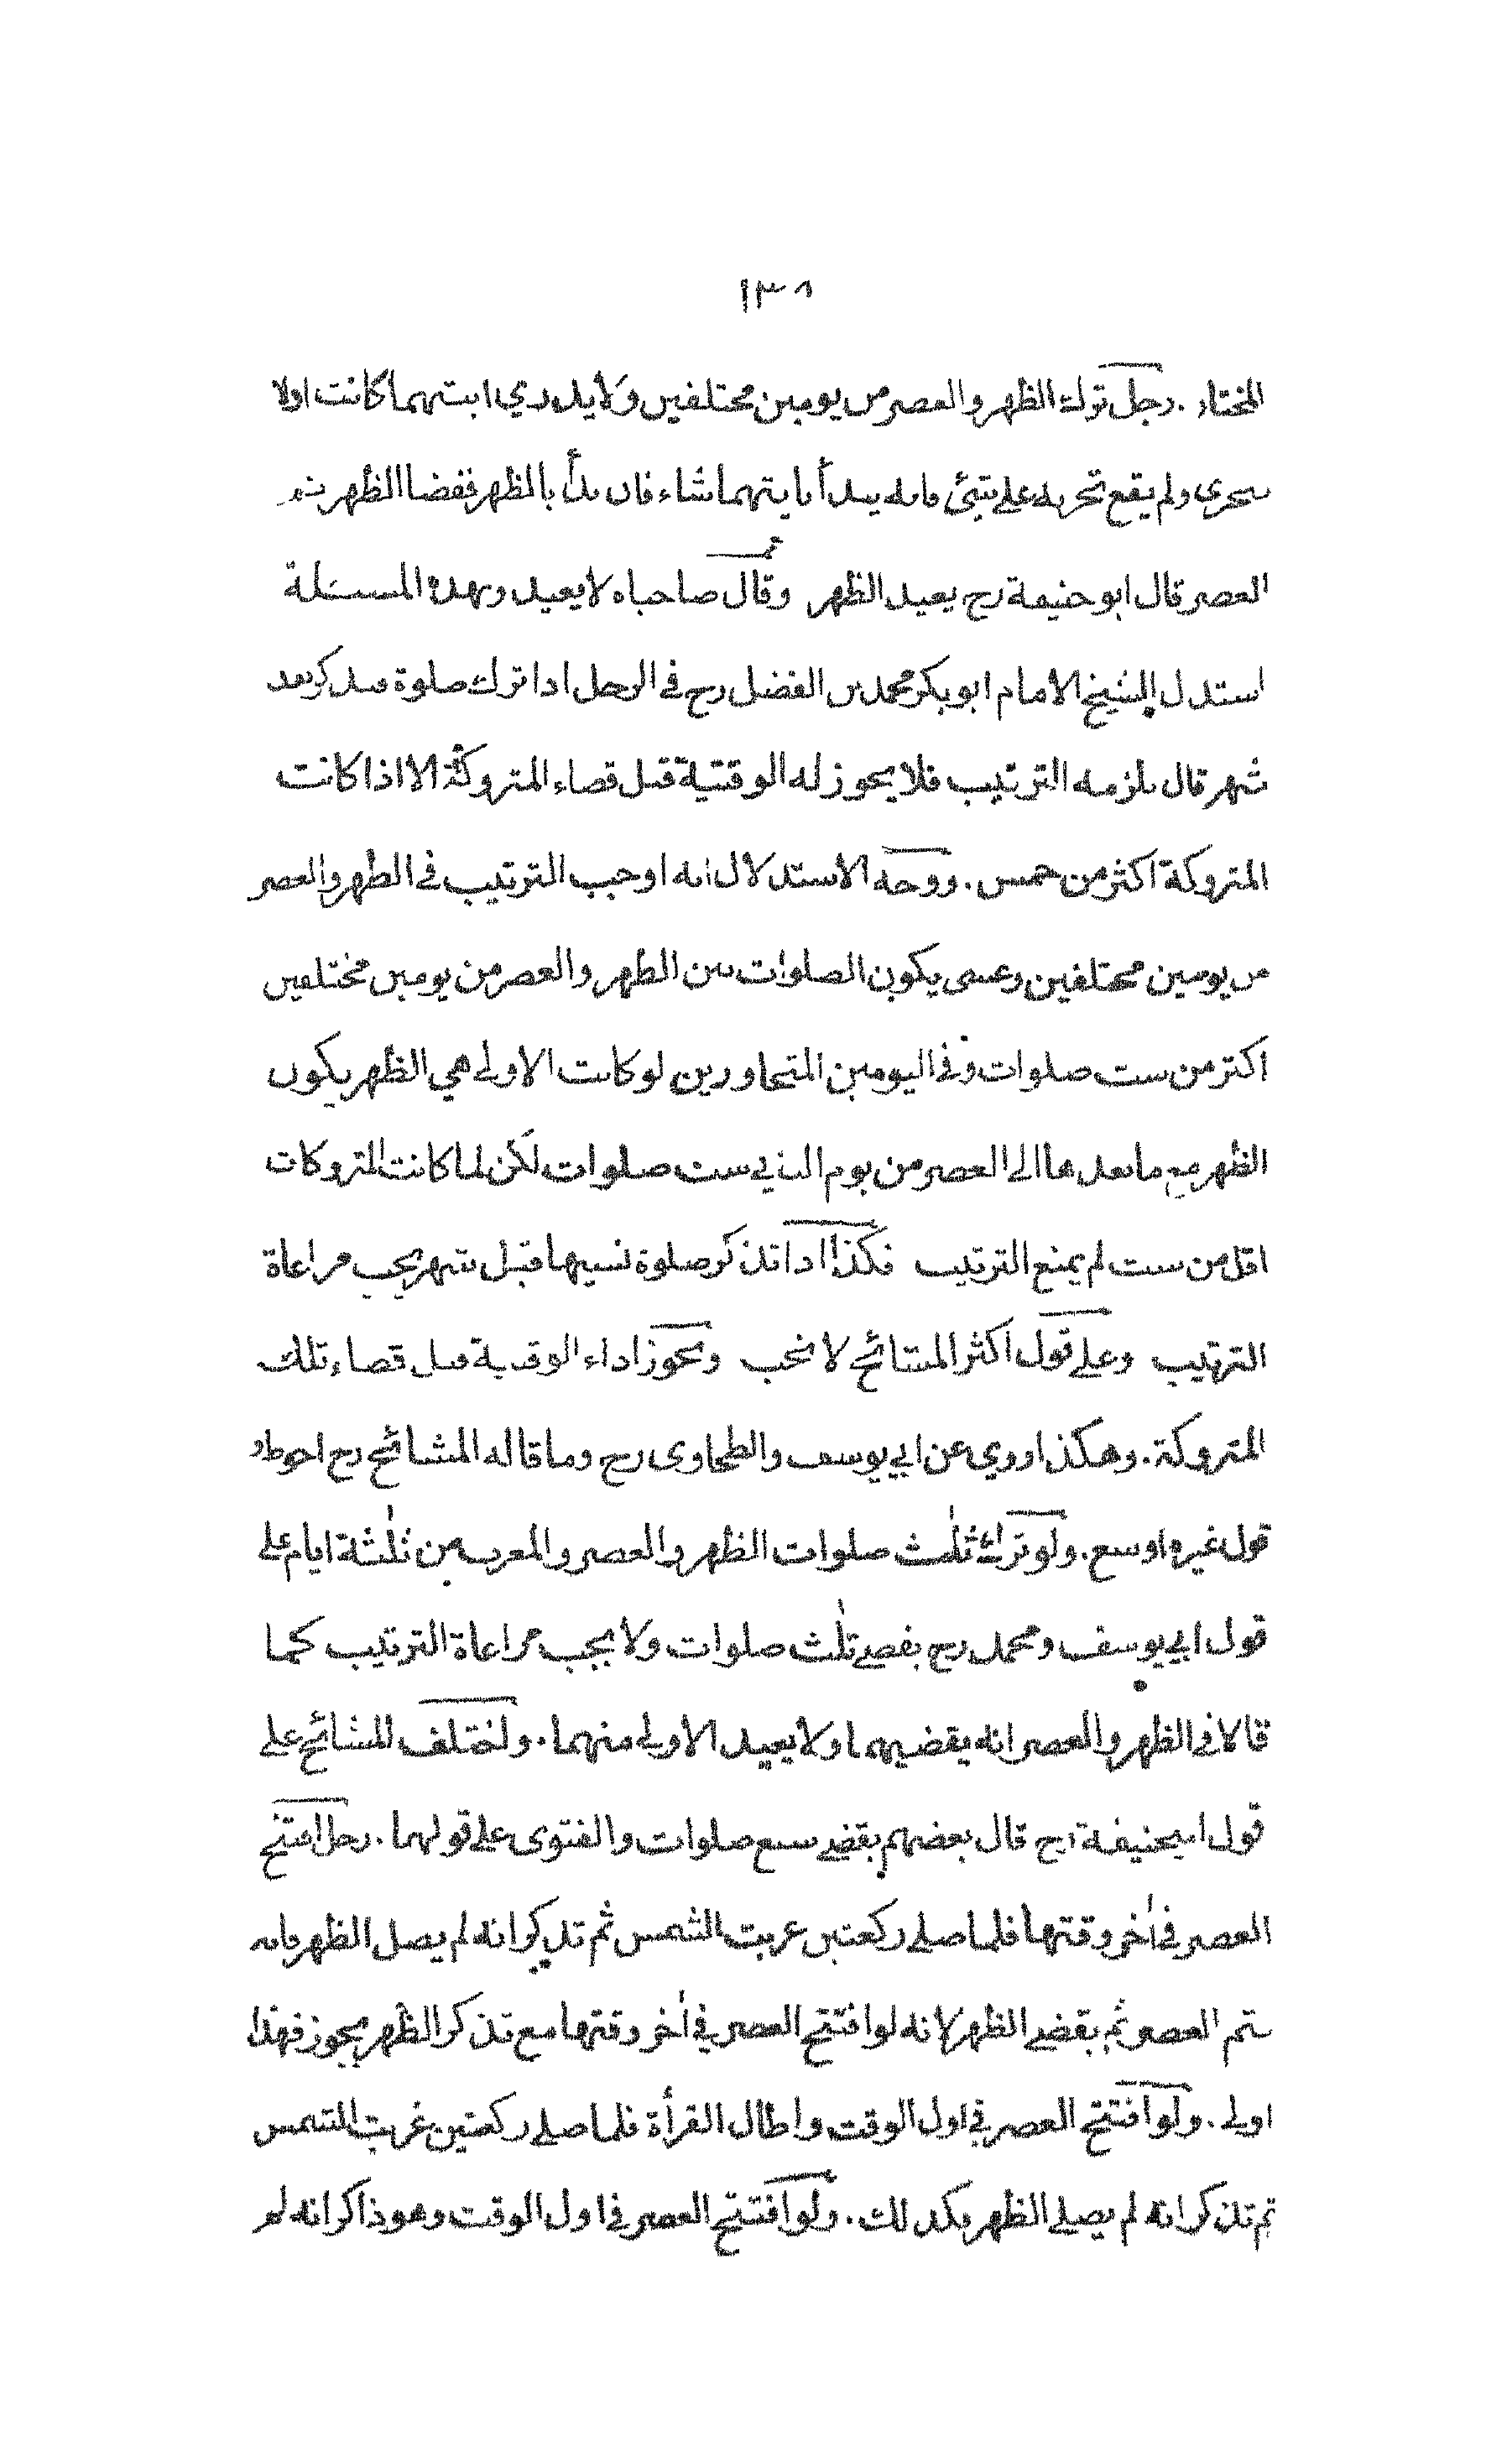 ١٣٨
المختار. رجل ترك الظهر والعصر من يومين مختلفين ولايدري ايتهما كانت اولا
يتحرى ولم يقع تحريه على شئ فانه يبدأ بايتهما شاء فان بدأ بالظهر فقضا الظهر ثم
العصر قال ابو حنيفة رح يعيد الظهر وقال صاحباه لايعيد وبهذه المسئلة
استدل الشيخ الامام ابوبكر محمد بن الفضل رح في الرجل اذا ترك صلوة فذكر بعد
شهر قال يلزمه الترتيب فلا يجوز له الوقتية قبل قضاء المتروكة الا اذا كانت
المتروكة اكثر من خمس. ووجه الاستدلال انه اوجب الترتيب في الظهر والعصر
من يومين مختلفين وعسى يكون الصلوات بين الظهر والعصر من يومين مختلفين
اكثر من ست صلوات وفي اليومين المتجاورين لو كانت الاولى هي الظهر يكون
الظهر مع ما بعدها الى العصر من يوم الثاني ست صلوات لكن لما كانت المتروكات
اقل من ست لم يمنع الترتيب فكذا اذا تذكر صلوة نسيها قبل شهر يجب مراعاة
الترتيب وعلى قول اكثر المشائخ لا يجب ويجوز اداء الوقتية قبل قضاء تلك
المتروكة. وهكذا روي عن ابي يوسف والطحاوى رح وما قاله المشائخ رح احوط و
قول غيره اوسع. ولو ترك ثلٰث صلوات الظهر والعصر والمغرب من ثلٰثة ايام على
قول ابي يوسف ومحمد رح يقضي ثلٰث صلوات ولا يجب مراعاة الترتيب كما
قالا في الظهر والعصر انه يقضيهما ولا يعيد الاولى منهما. واختلف المشائخ على
قول ابيحنيفة رح قال بعضهم يقضي سبع صلوات والفتوى على قولهما. رجل افتتح
العصر في اٰخر وقتها فلما صلى ركعتين غربت الشمس ثم تذكر انه لم يصل الظهر فانه
يتم العصر ثم يقضي الظهر لانه لو افتتح العصر في اٰخر وقتها مع تذكر الظهر يجوز فهذا
اولى. ولو افتتح العصر في اول الوقت واطال القرأة فلما صلى ركعتين غربت الشمس
ثم تذكر انه لم يصلي الظهر فكذلك. ولو افتتح العصر في اول الوقت وهو ذاكر انه لم